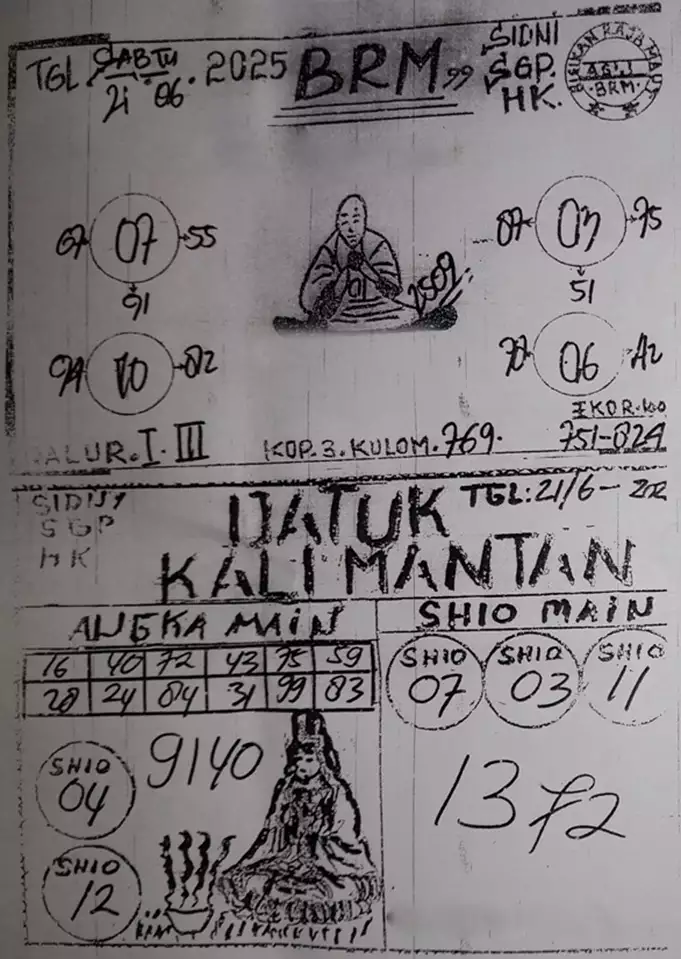 TGL. SABTU 21.06.2025
BRM"
SIDNI
SGP.
HK.
BISIKAN RAJA MAUT
ASLI
BRM
67 07 55
91
03 75
51
2509
10 82
06 42
EKOR.
JALUR.I.III
KOP.3.KULOM.769.
751-824
SIDNY
SGP
HK
DATUK
KALIMANTAN
TGL:21/6-202
ANGKA MAIN
16 40 72 43 75 59
28 24 84 31 99 83
SHIO MAIN
SHIO 07
SHIO 03
SHIO 11
SHIO 04
9140
1372
SHIO 12